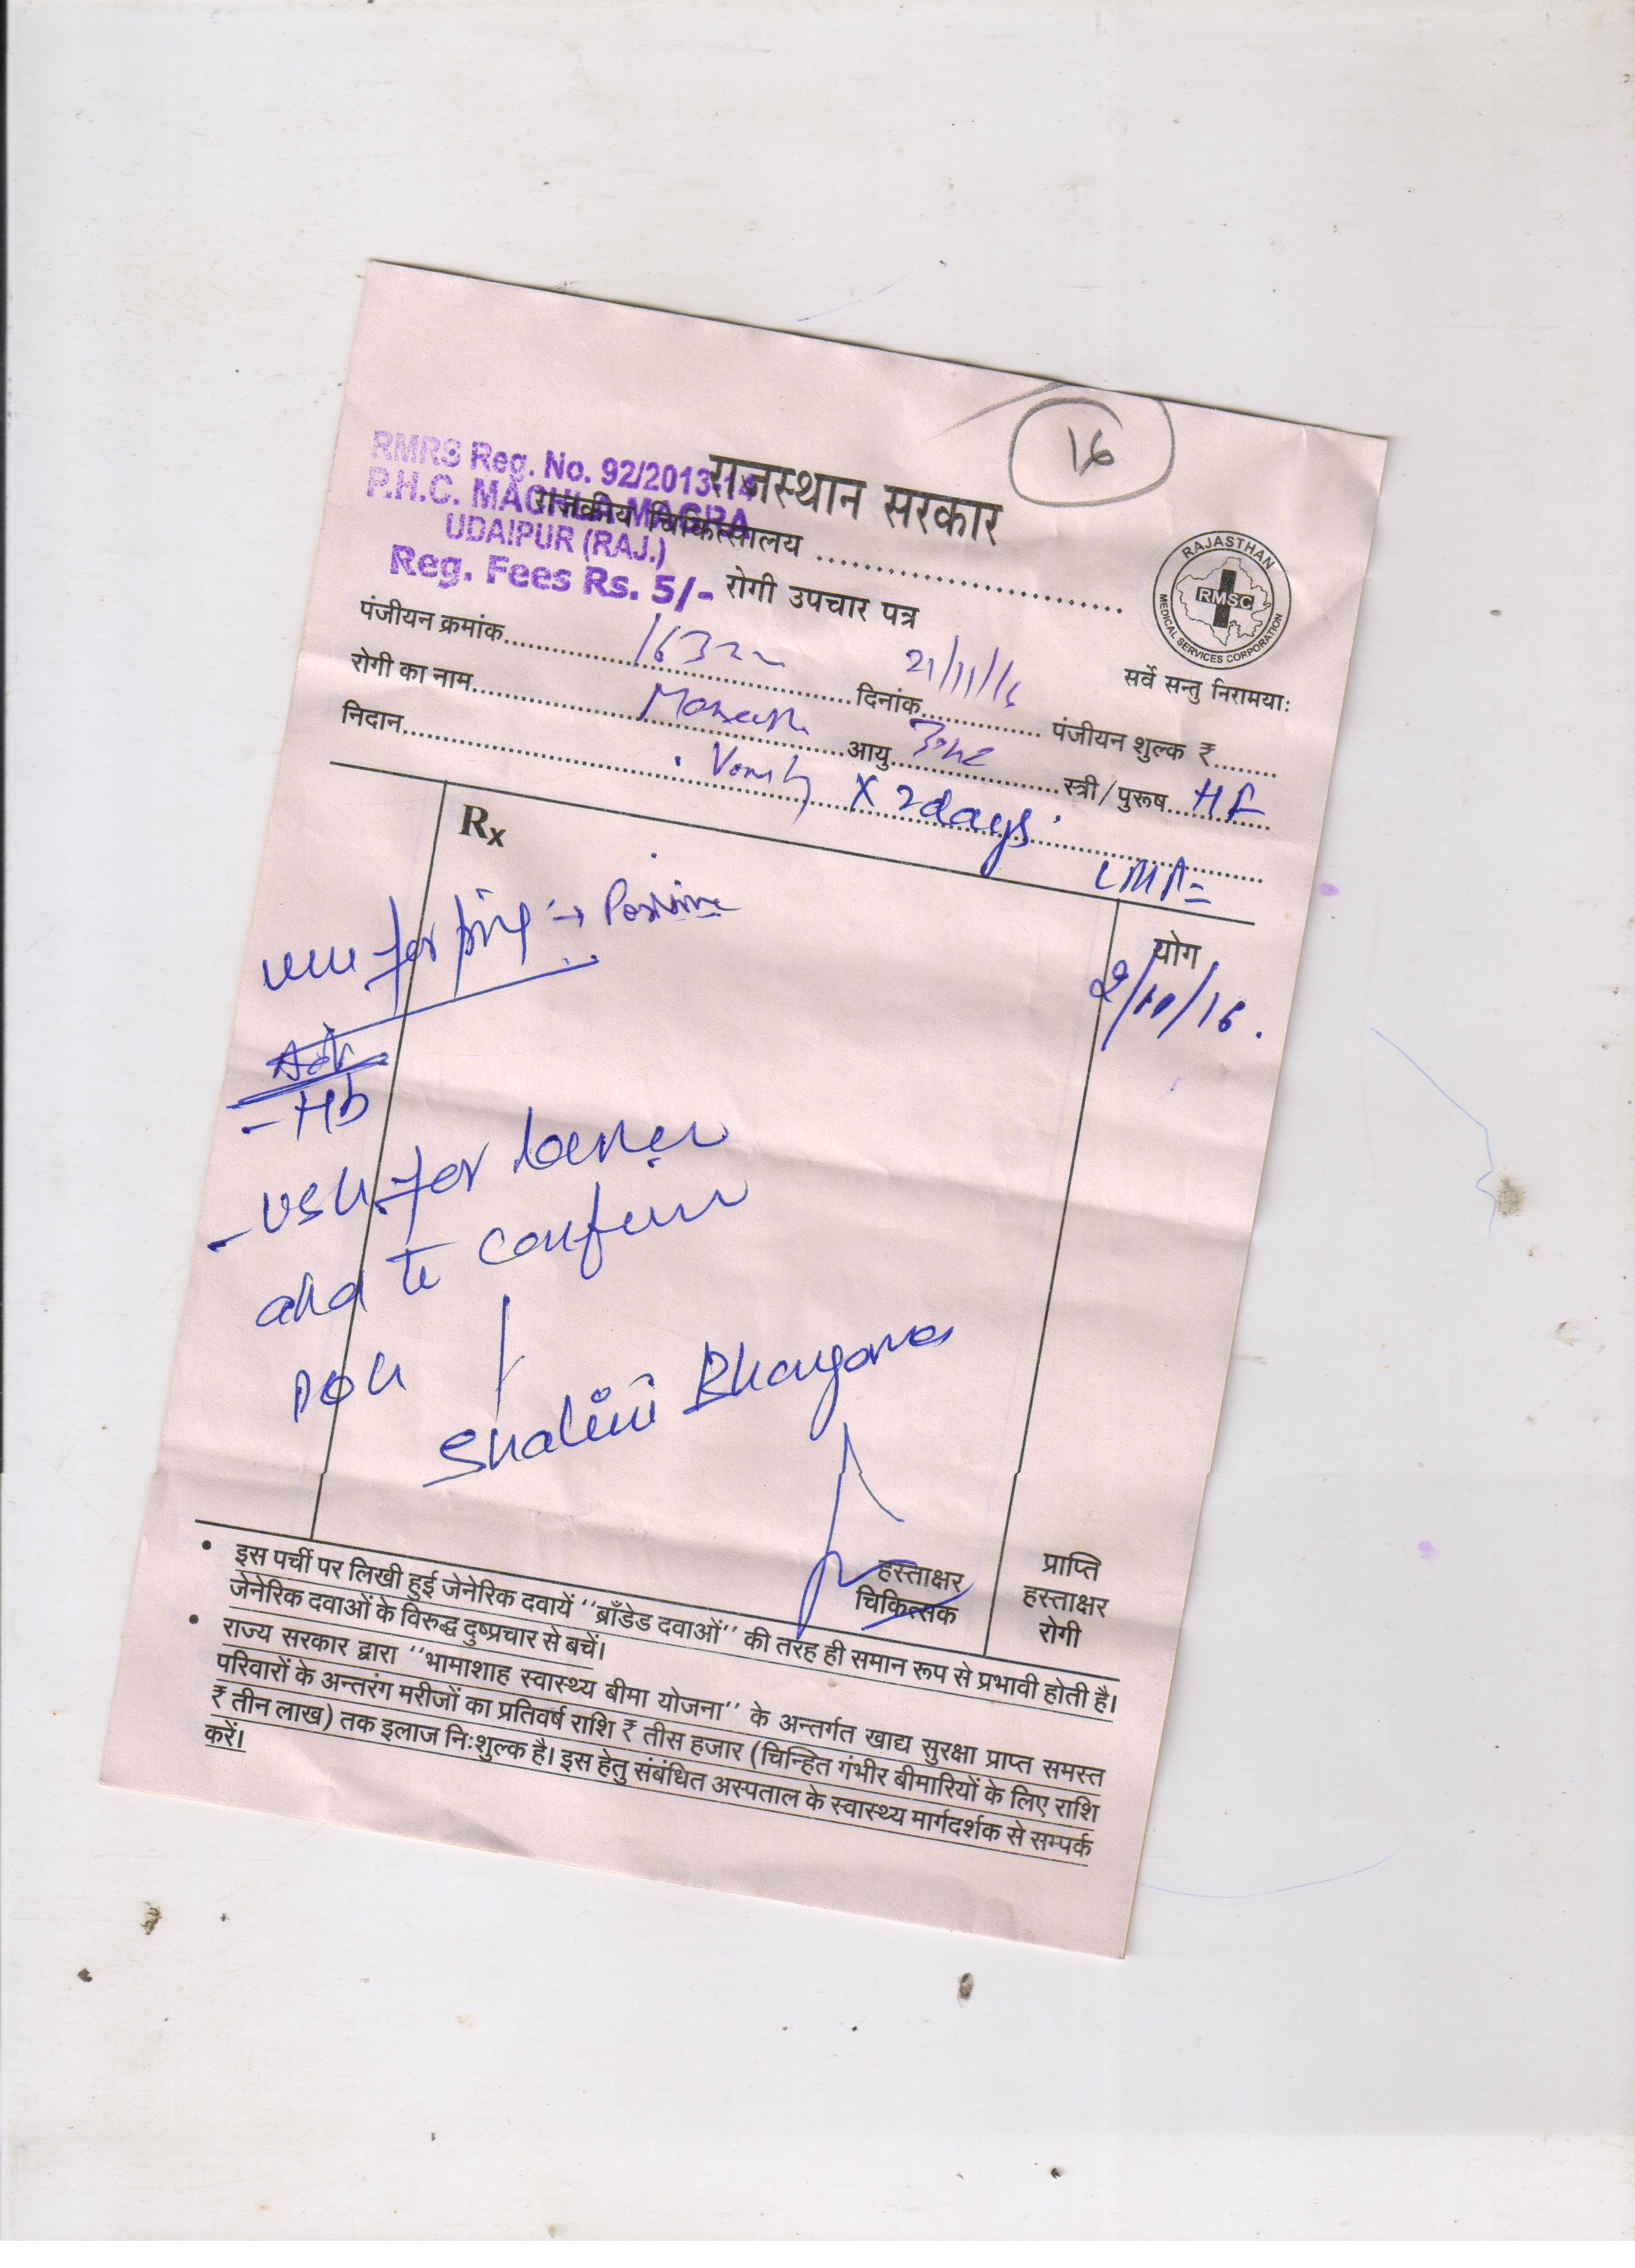 16
RMRS Reg. No. 92/2013-14
P.H.C. MACHLA MAGRA
UDAIPUR (RAJ.)
Reg. Fees Rs. 5/-
राजस्थान सरकार
राजकीय चिकित्सालय ..............................
रोगी उपचार पत्र
RAJASTHAN
RMSC
MEDICAL SERVICES CORPORATION
सर्वे सन्तु निरामयाः
पंजीयन क्रमांक 1632 दिनांक 21/11/16 पंजीयन शुल्क ₹
रोगी का नाम आयु स्त्री/पुरूष
निदान x 2 days.
LMP=
Rx
योग
2/10/16.
for → Positive
Adv
- Hb
- USG for
and to confirm
POG
Shalini Bhargava
हस्ताक्षर
चिकित्सक
प्राप्ति
हस्ताक्षर
रोगी
• इस पर्ची पर लिखी हुई जेनेरिक दवायें ''ब्राँडेड दवाओं'' की तरह ही समान रूप से प्रभावी होती है।
जेनेरिक दवाओं के विरुद्ध दुष्प्रचार से बचें।
• राज्य सरकार द्वारा ''भामाशाह स्वास्थ्य बीमा योजना'' के अन्तर्गत खाद्य सुरक्षा प्राप्त समस्त
परिवारों के अन्तरंग मरीजों का प्रतिवर्ष राशि ₹ तीस हजार (चिन्हित गंभीर बीमारियों के लिए राशि
₹ तीन लाख) तक इलाज निःशुल्क है। इस हेतु संबंधित अस्पताल के स्वास्थ्य मार्गदर्शक से सम्पर्क
करें।